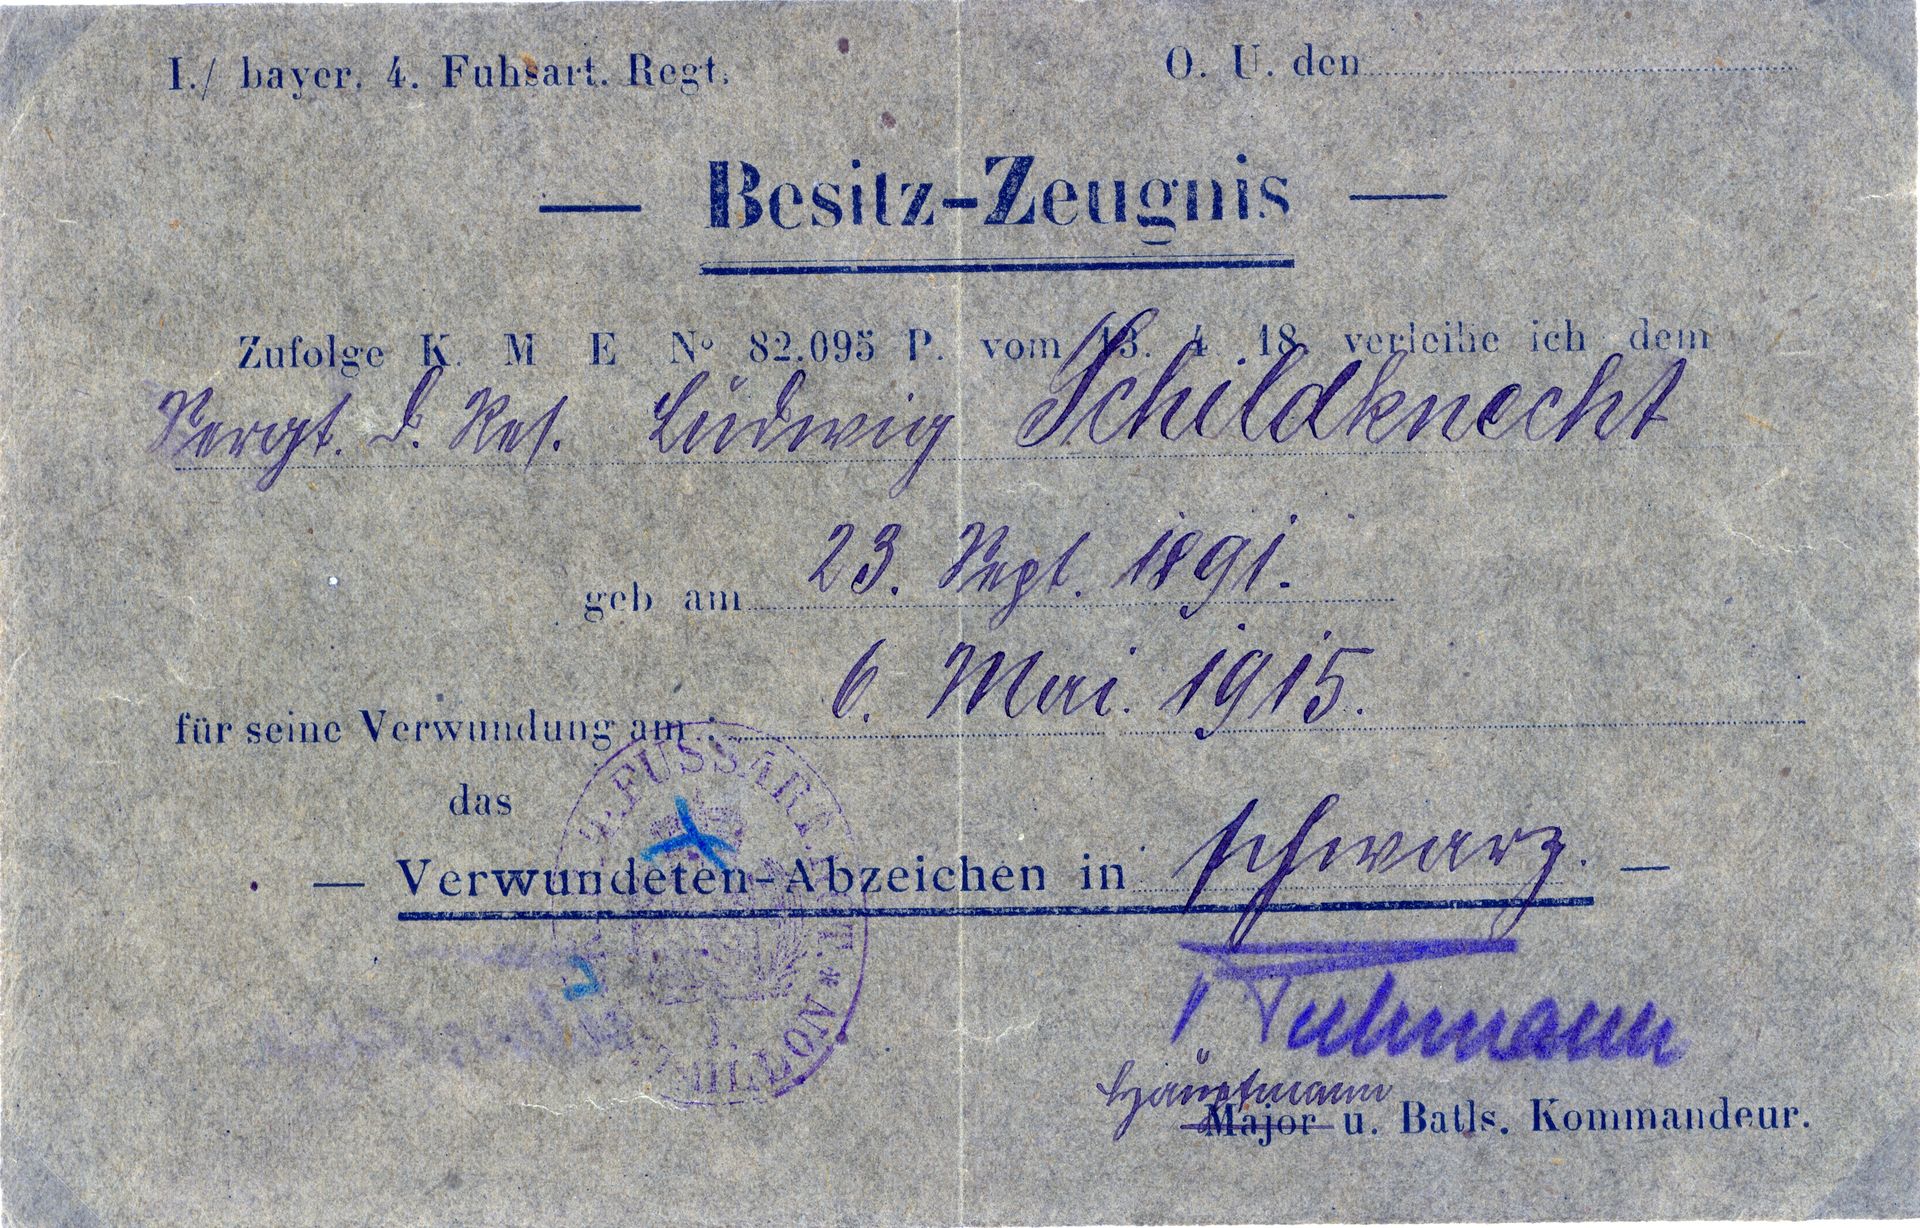 I./ bayer. 4. Fuhsart. Regt. O. U. den
— Besitz-Zeugnis —
Zufolge K. M E Nº 82.095 P. vom 13. 4 18. verleihe ich dem
Sergt. d. Res. Ludwig Schildknecht
geb am 23. Sept. 1891.
für seine Verwundung am : 6. Mai. 1915.
das
— Verwundeten-Abzeichen in schwarz. —
FUSSART
Hauptmann
Major u. Batls. Kommandeur.